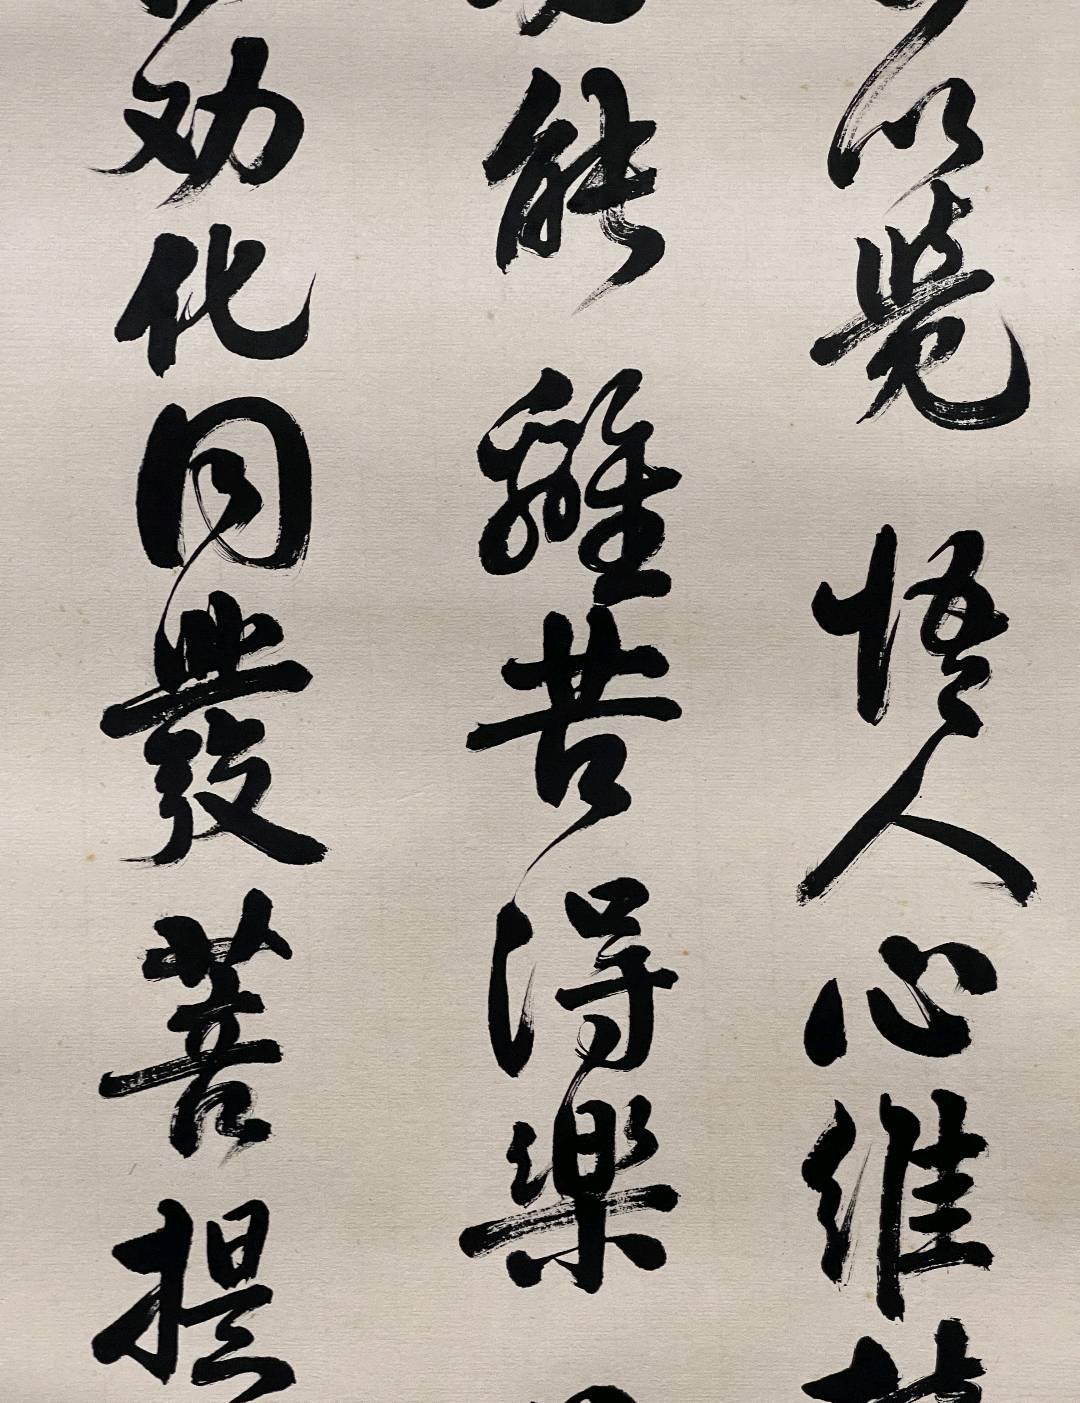 以覺悟人心維
能離苦得樂
劝化同發菩提